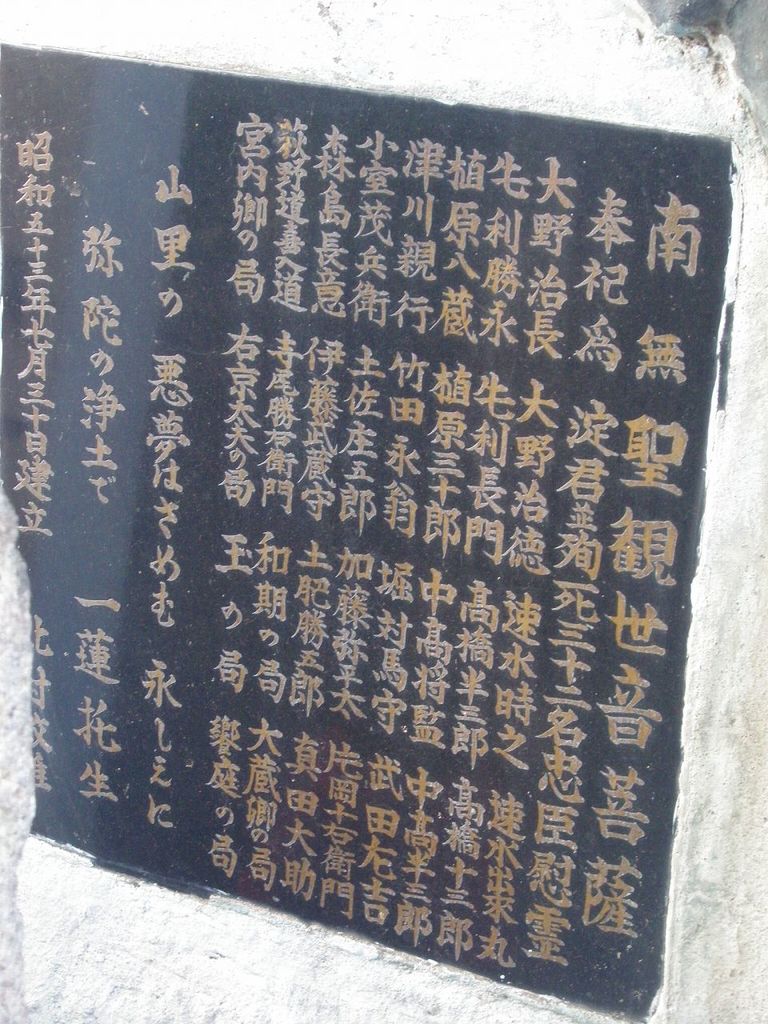 南無聖観世音菩薩
奉祀為 淀君並殉死三十二名忠臣慰霊
大野治長 大野治徳 速水時之 速水出来丸
毛利勝永 毛利長門 高橋半三郎 高橋十三郎
植原八蔵 植原三十郎 中高将監 中高半三郎
津川親行 竹田永翁 堀対馬守 武田左吉
小室茂兵衛 土佐庄五郎 加藤弥平太 片岡十右衛門
森島長意 伊藤武蔵守 土肥勝五郎 真田大助
萩野道喜入道 寺尾勝右衛門 和期の局 大蔵卿の局
宮内卿の局 右京太夫の局 玉の局 饗庭の局
山里の 悪夢はさめむ 永しえに
弥陀の浄土で 一蓮托生
昭和五十三年七月三十日建立